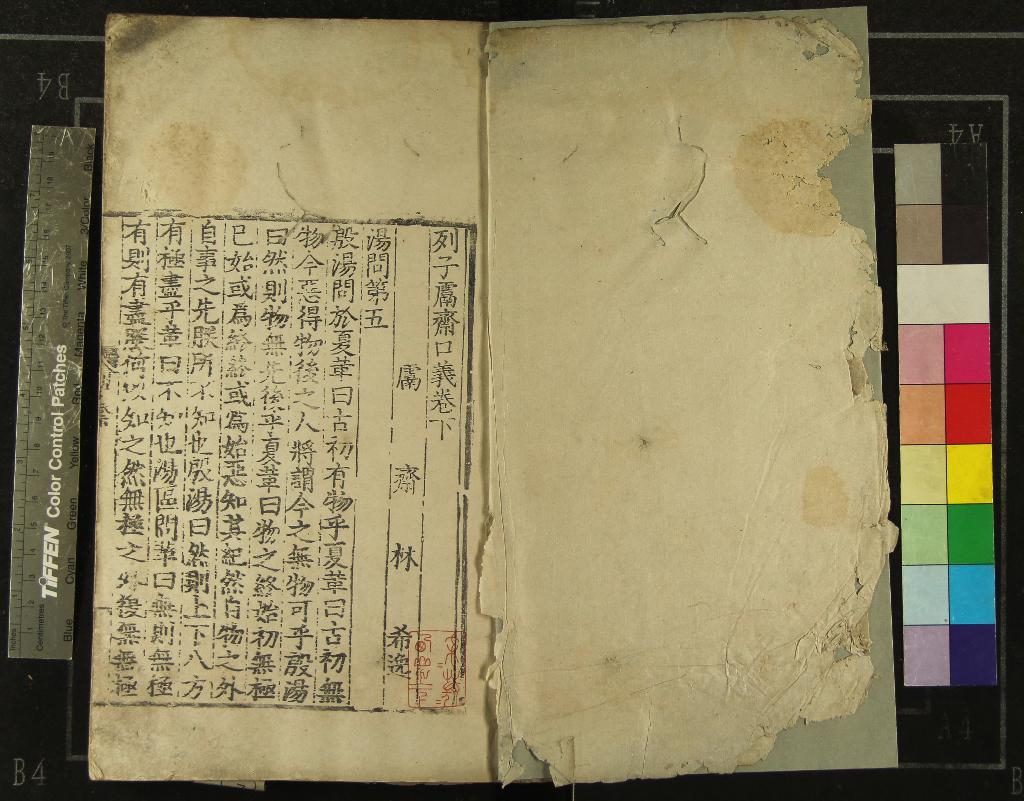 列子鬳齋口義卷下
鬳齋林希逸
湯問第五
殷湯問於夏革曰古初有物乎夏革曰古初無
物今惡得物後之人將謂今之無物可乎殷湯
曰然則物無先後乎夏革曰物之終始初無極
已始或爲終終或爲始惡知其紀然自物之外
自事之先朕所不知也殷湯曰然則上下八方
有極盡乎革曰不知也湯固問革曰無則無極
有則有盡朕何以知之然無極之外復無無極
TIFFEN Color Control Patches
Blue Cyan Green Yellow Red Magenta White 3/Color Black
Centimetres
Inches
B4
A4
B4
A4
B